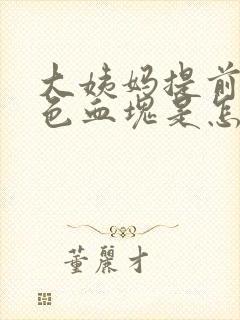 大姨妈提前
色血块是怎
董麗才